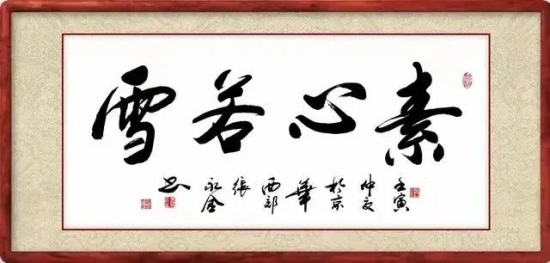 素心若雪
壬寅仲夏於京華西部張永全书